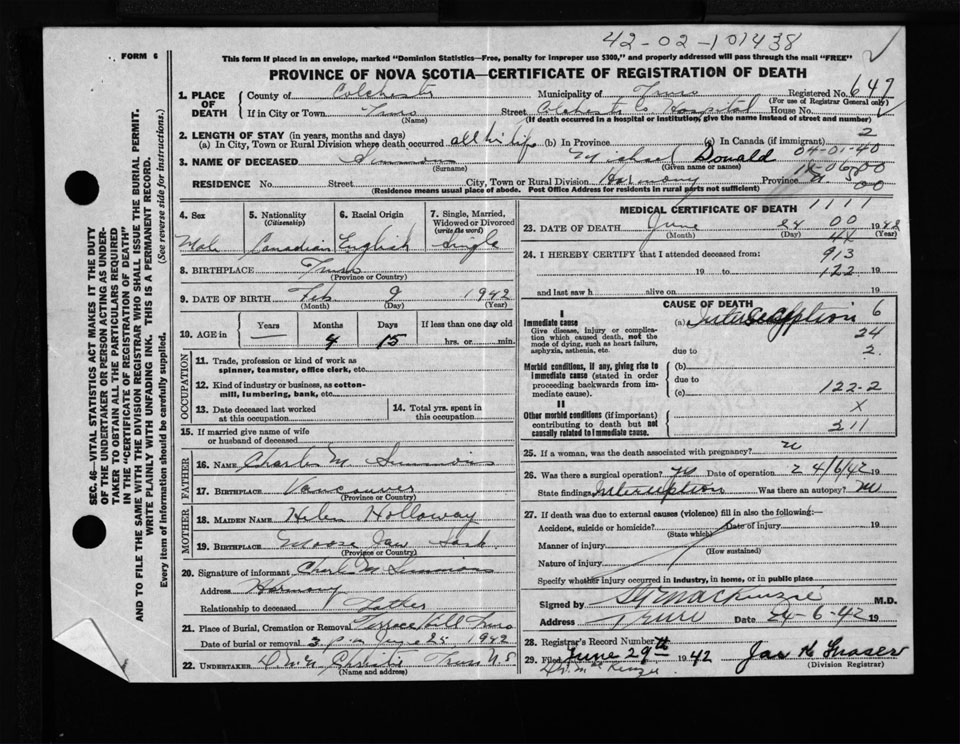 42-02-101438
FORM 6
This form if placed in an envelope, marked "Dominion Statistics—Free, penalty for improper use $300," and properly addressed will pass through the mail "FREE"
PROVINCE OF NOVA SCOTIA—CERTIFICATE OF REGISTRATION OF DEATH
1. PLACE OF DEATH County of Colchester Municipality of Truro Registered No. 647
(For use of Registrar General only)
If in City or Town Truro (Name) Street Colchester Co Hospital House No.
(If death occurred in a hospital or institution, give the name instead of street and number)
2. LENGTH OF STAY (in years, months and days) 2
(a) In City, Town or Rural Division where death occurred all his life (b) In Province (c) In Canada (if immigrant)
04-01-40
3. NAME OF DECEASED Simmons Michael Donald
(Surname) (Given name or names)
RESIDENCE No. Street City, Town or Rural Division Harmony Province N S
(Residence means usual place of abode. Post Office Address for residents in rural parts not sufficient)
00
4. Sex Male
5. Nationality (Citizenship) Canadian
6. Racial Origin English
7. Single, Married, Widowed or Divorced (write the word) Single
8. BIRTHPLACE Truro
(Province or Country)
9. DATE OF BIRTH Feb 9 1942
(Month) (Day) (Year)
10. AGE in Years — Months 4 Days 15 If less than one day old hrs. or min.
OCCUPATION
11. Trade, profession or kind of work as spinner, teamster, office clerk, etc.
12. Kind of industry or business, as cotton-mill, lumbering, bank, etc.
13. Date deceased last worked at this occupation
14. Total yrs. spent in this occupation
15. If married give name of wife or husband of deceased
FATHER
16. NAME Charles M. Simmons
17. BIRTHPLACE Vancouver
(Province or Country)
MOTHER
18. MAIDEN NAME Helen Holloway
19. BIRTHPLACE Moose Jaw Sask
(Province or Country)
20. Signature of informant Charles M Simmons
Address Harmony
Relationship to deceased Father
21. Place of Burial, Cremation or Removal Terrace Hill Truro
Date of burial or removal 3 p.m. June 25 1942
22. UNDERTAKER Christie Truro N.S
(Name and address)
MEDICAL CERTIFICATE OF DEATH 1111
23. DATE OF DEATH June 24 1942
(Month) (Day) (Year)
00
24. I HEREBY CERTIFY that I attended deceased from: 913
19 to 122 19
and last saw h alive on 19
CAUSE OF DEATH
I
Immediate cause (a) Intussusception 6
Give disease, injury or complication which caused death, not the mode of dying, such as heart failure, asphyxia, asthenia, etc.
24
due to 2
Morbid conditions, if any, giving rise to immediate cause (stated in order proceeding backwards from immediate cause).
(b)
due to
(c) 122-2
II
Other morbid conditions (if important) contributing to death but not causally related to immediate cause.
X
311
25. If a woman, was the death associated with pregnancy?
26. Was there a surgical operation? yes Date of operation 24/6/42 19
State findings Was there an autopsy? no
27. If death was due to external causes (violence) fill in also the following:—
Accident, suicide or homicide? Date of injury 19
(State which)
Manner of injury
(How sustained)
Nature of injury
Specify whether injury occurred in industry, in home, or in public place
Signed by MacKenzie M.D.
Address Truro Date 24-6-42 19
28. Registrar's Record Number
29. Filed June 29th 1942 Jas H Fraser
(Division Registrar)
Dr. McKenzie
SEC. 46—VITAL STATISTICS ACT MAKES IT THE DUTY
OF THE UNDERTAKER OR PERSON ACTING AS UNDER-
TAKER TO OBTAIN ALL THE PARTICULARS REQUIRED
IN THE "CERTIFICATE OF REGISTRATION OF DEATH"
AND TO FILE THE SAME WITH THE DIVISION REGISTRAR WHO SHALL ISSUE THE BURIAL PERMIT.
WRITE PLAINLY WITH UNFADING INK. THIS IS A PERMANENT RECORD.
Every item of information should be carefully supplied. (See reverse side for instructions.)